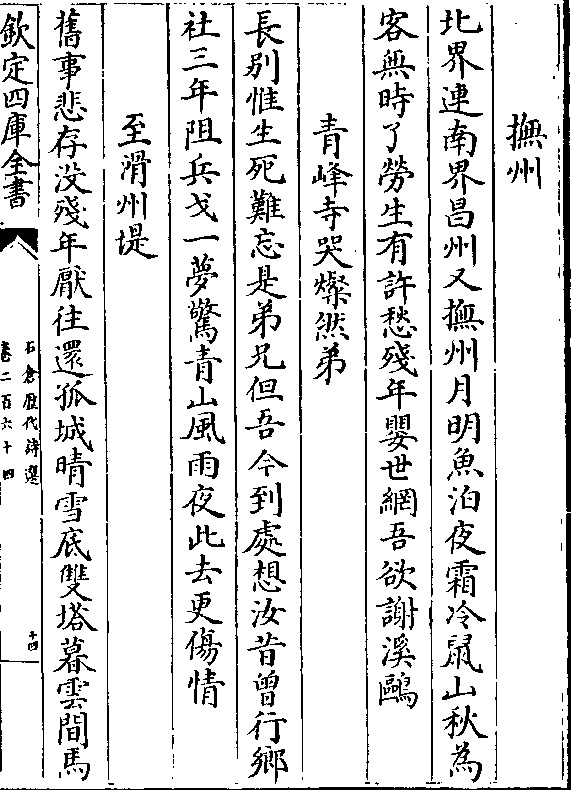 撫州
北界連南界昌州又撫州月明魚泊夜霜冷鼠山秋為
客無時了勞生有許愁殘年嬰世網吾欲謝溪鷗
青峰寺哭燦然弟
長别惟生死難忘是弟兄但吾今到處想汝昔曾行鄉
社三年阻兵戈一夢驚青山風雨夜此去更傷情
至滑州堤
舊事悲存没殘年厭往還孤城晴雪底雙塔暮雲間馬
欽定四庫全書
石倉歷代詩選
卷二百六十四
十四